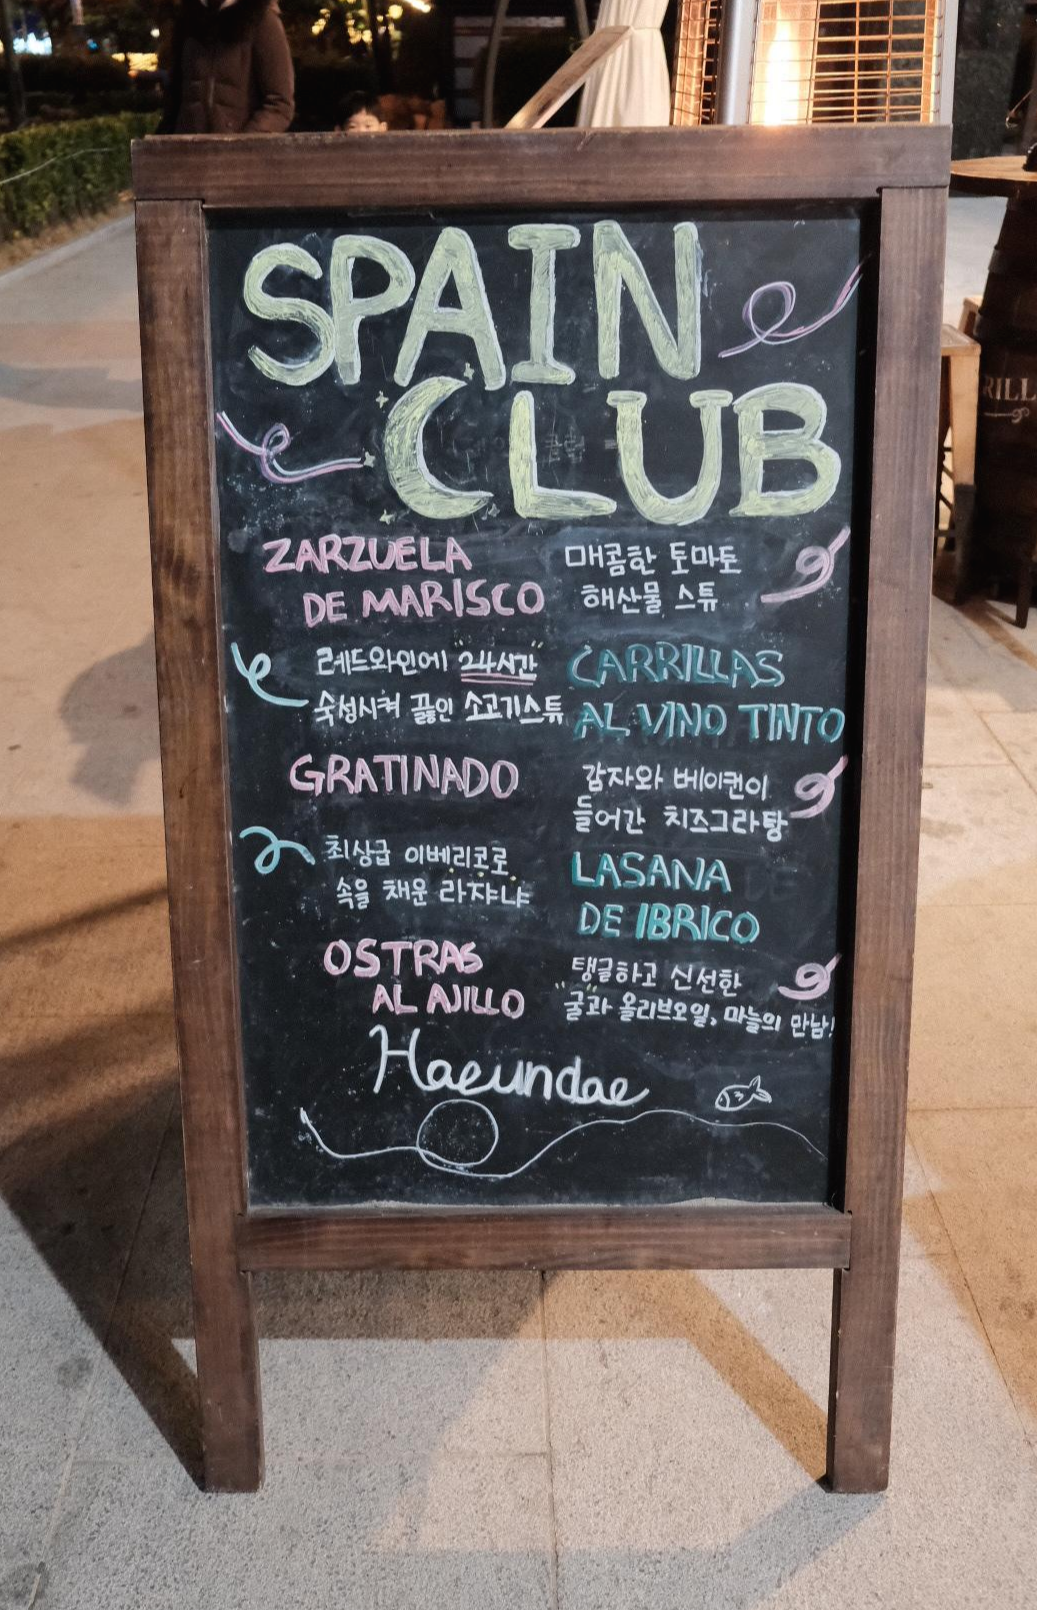 SPAIN
CLUB
ZARZUELA
DE MARISCO
매콤한 토마토
해산물 스튜
레드와인에 "24시간"
숙성시켜 끓인 소고기스튜
CARRILLAS
AL VINO TINTO
GRATINADO
감자와 베이컨이
들어간 치즈그라탕
최상급 이베리코로
속을 채운 라쟈냐
LASANA
DE IBRICO
OSTRAS
AL AJILLO
탱글하고 신선한
"굴"과 올리브오일, 마늘의 만남!
Haeundae
RILL